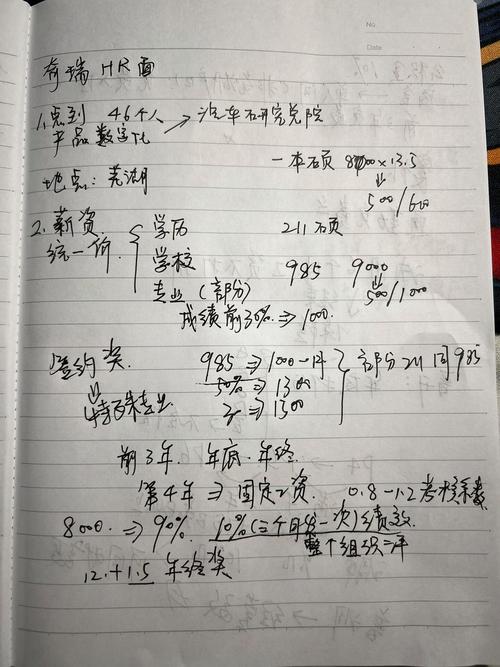 No.
Date
奇瑞 HR面
1. 点到 46个人 → 汽车研究总院
产品数字化
一本硕 8000×13.5
地点：芜湖 ↓ 500/600
2. 薪资 { 学历 211硕
统一价 学校 985 9000
专业（部分） ↓ 500/1000
成绩前30% ⇒ 1000.
签约奖 985 ⇒ 1000-1千 } 部分211同985
↓ 50% ⇒ 1300
特殊专业 ⇒ 1300
前3年. 年底. 年终.
第4年 ⇒ 固定工资. 0.8-1.2考核系数
8000 ⇒ 90%. 10%(三个月发一次)绩效
整个组织评
12.+1.5 年终奖